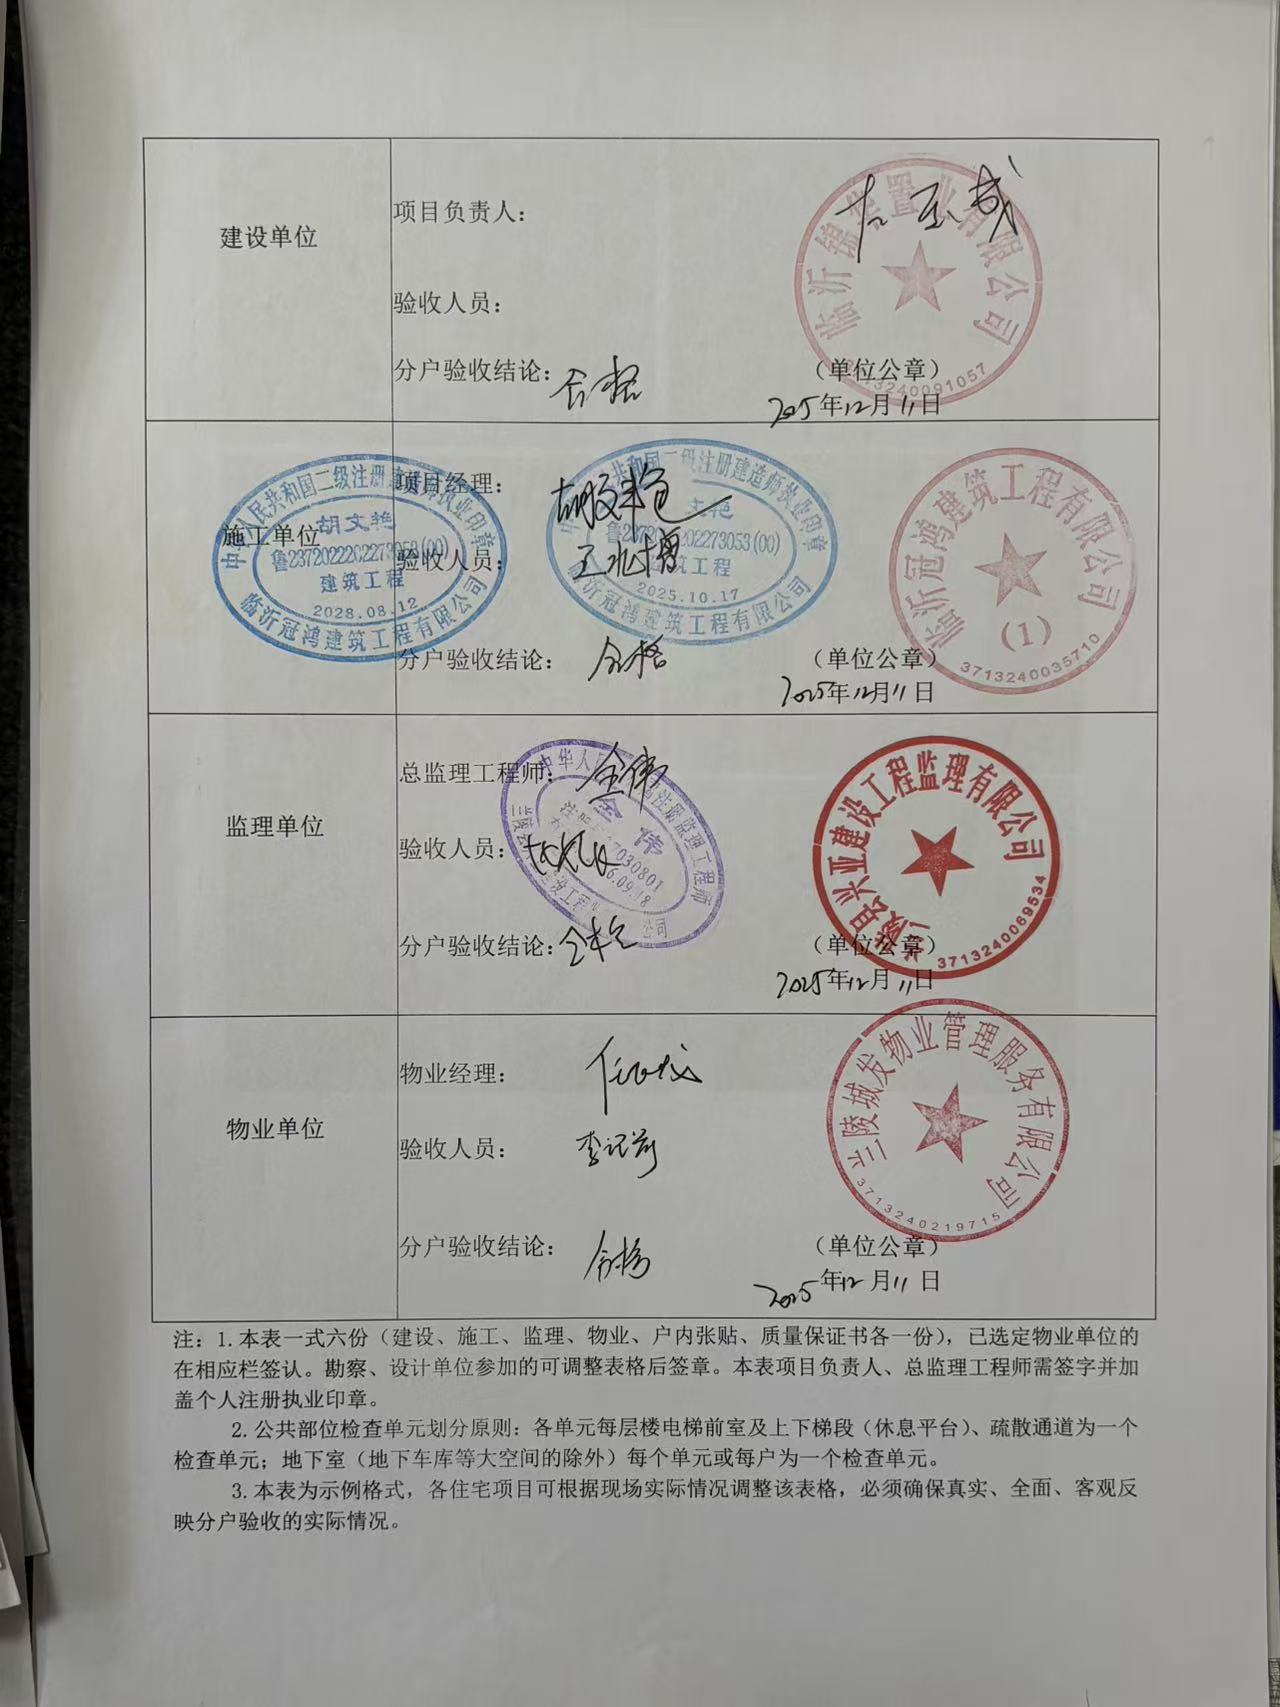 建设单位
项目负责人：
验收人员：
分户验收结论：合格
（单位公章）
2025年12月11日
临沂锦芸置业有限公司
3713240091057
施工单位
项目经理：胡文艳
验收人员：王兆增
分户验收结论：合格
（单位公章）
2025年12月11日
中华人民共和国二级注册建造师执业印章
胡文艳
鲁2372022202273053(00)
建筑工程
2028.08.12
临沂冠鸿建筑工程有限公司
共和国二级注册建造师执业印章
文艳
202273053(00)
建筑工程
2025.10.17
临沂冠鸿建筑工程有限公司
临沂冠鸿建筑工程有限公司
(1)
3713240035710
监理单位
总监理工程师：金伟
验收人员：
分户验收结论：合格
（单位公章）
2025年12月11日
中华人民
注册监理工程师
金伟
7030801
6.09.18
兰陵县兴亚建设工程监理有限公司
3713240069534
物业单位
物业经理：
验收人员：
分户验收结论：合格
（单位公章）
2025年12月11日
兰陵城发物业管理服务有限公司
3713240219715
注：1.本表一式六份（建设、施工、监理、物业、户内张贴、质量保证书各一份），已选定物业单位的
在相应栏签认。勘察、设计单位参加的可调整表格后签章。本表项目负责人、总监理工程师需签字并加
盖个人注册执业印章。
2.公共部位检查单元划分原则：各单元每层楼电梯前室及上下梯段（休息平台）、疏散通道为一个
检查单元；地下室（地下车库等大空间的除外）每个单元或每户为一个检查单元。
3.本表为示例格式，各住宅项目可根据现场实际情况调整该表格，必须确保真实、全面、客观反
映分户验收的实际情况。